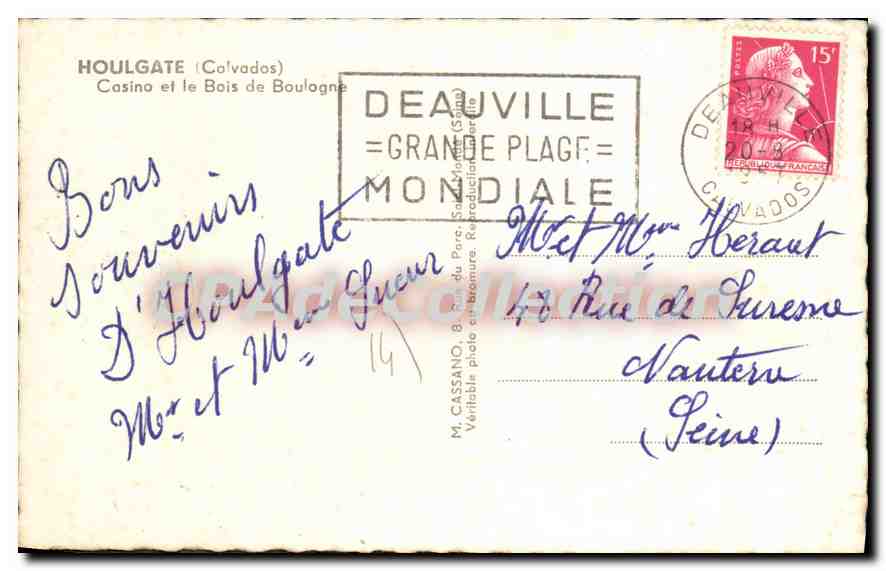 HOULGATE (Calvados)
Casino et le Bois de Boulogne
DEAUVILLE
=GRANDE PLAGE=
MONDIALE
POSTES
15F
REPUBLIQUE FRANÇAISE
DEAUVILLE
18 H
20-8
CALVADOS
Bons
Souvenirs
D'Houlgate
Mr et Mme Sueur
14
M. CASSANO, 8, Rue du Parc, Saint-Mandé (Seine)
Véritable photo au bromure. Reproduction interdite
Mr et Mme Heraut
48 Rue de Suresne
Nanterre
(Seine)
CPAdeCollection